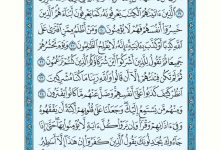 الَّذِينَ ءَاتَيْنَٰهُمُ الْكِتَٰبَ يَعْرِفُونَهُ كَمَا يَعْرِفُونَ أَبْنَاءَهُمُ الَّذِينَ
خَسِرُوا أَنفُسَهُمْ فَهُمْ لَا يُؤْمِنُونَ وَمَنْ أَظْلَمُ مِمَّنِ افْتَرَىٰ عَلَى
اللَّهِ كَذِبًا أَوْ كَذَّبَ بِـَٔايَٰتِهِ إِنَّهُ لَا يُفْلِحُ الظَّٰلِمُونَ وَيَوْمَ نَحْشُرُهُمْ
جَمِيعًا ثُمَّ نَقُولُ لِلَّذِينَ أَشْرَكُوا أَيْنَ شُرَكَاؤُكُمُ الَّذِينَ كُنتُمْ
تَزْعُمُونَ ثُمَّ لَمْ تَكُن فِتْنَتُهُمْ إِلَّا أَن قَالُوا وَاللَّهِ رَبِّنَا مَا كُنَّا مُشْرِكِينَ
انظُرْ كَيْفَ كَذَبُوا عَلَىٰ أَنفُسِهِمْ وَضَلَّ عَنْهُم مَّا كَانُوا يَفْتَرُونَ
وَمِنْهُم مَّن يَسْتَمِعُ إِلَيْكَ وَجَعَلْنَا عَلَىٰ قُلُوبِهِمْ أَكِنَّةً أَن يَفْقَهُوهُ
وَفِي ءَاذَانِهِمْ وَقْرًا وَإِن يَرَوْا كُلَّ ءَايَةٍ لَّا يُؤْمِنُوا بِهَا حَتَّىٰ إِذَا
جَاءُوكَ يُجَٰدِلُونَكَ يَقُولُ الَّذِينَ كَفَرُوا إِنْ هَٰذَا إِلَّا أَسَٰطِيرُ